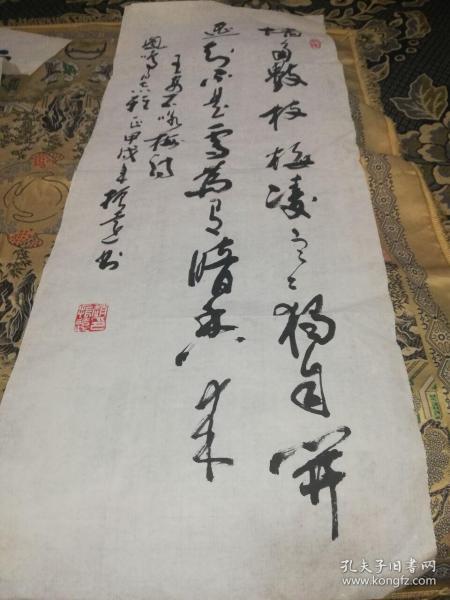 墙角數枝梅凌寒獨自開
遥知不是雪為有暗香来
王安石咏梅诗
正甲戌年振远书
孔夫子旧书网
www.kongfz.com